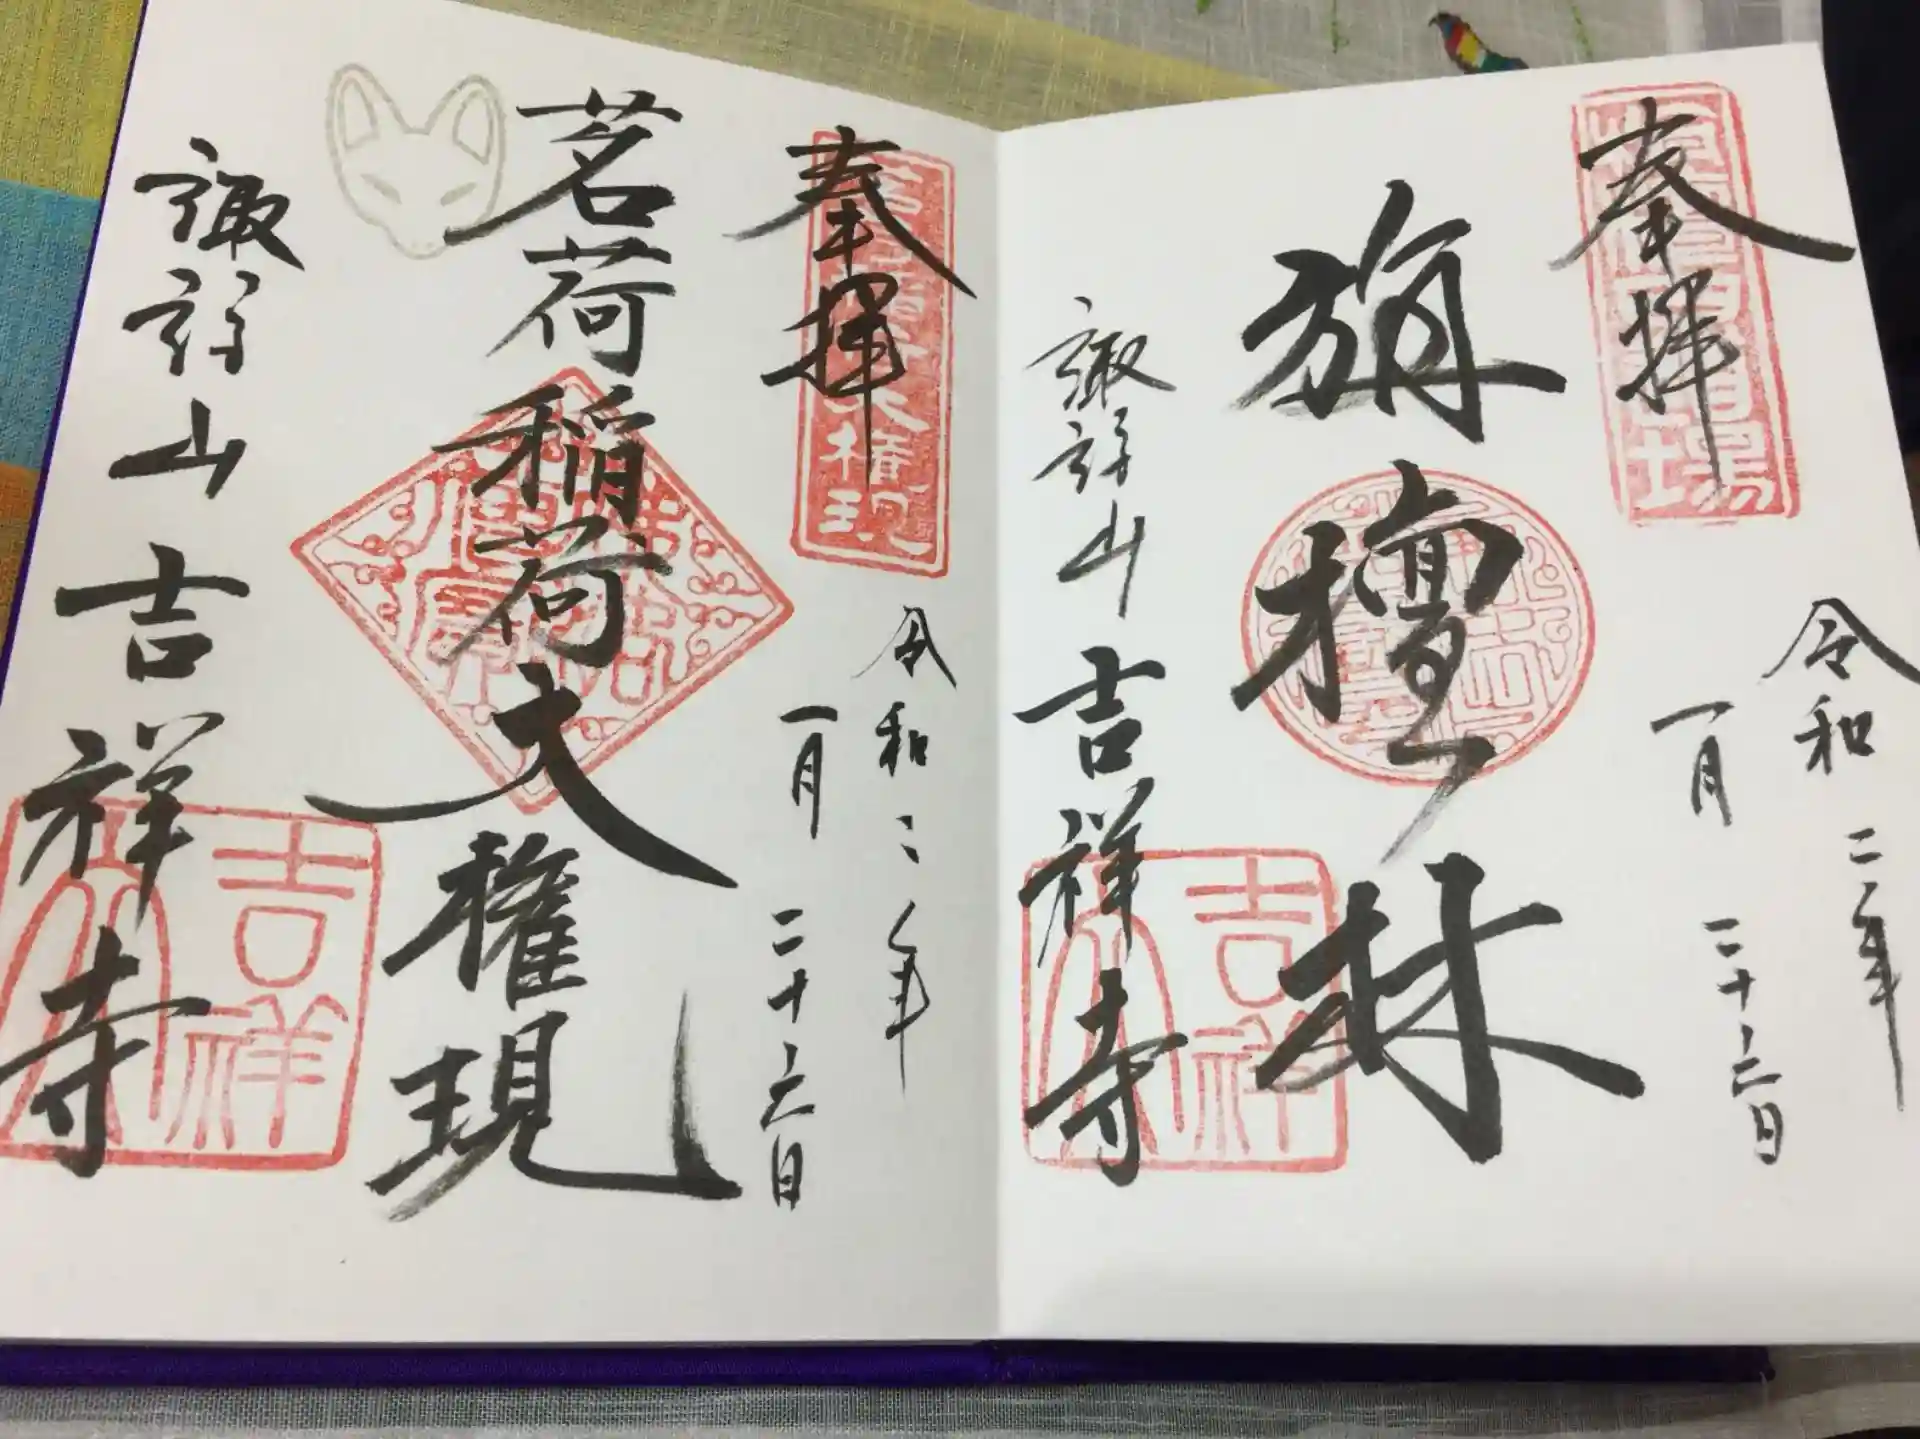 奉拝
令和二年
一月二十六日
旃檀林
諏訪山
吉祥寺
吉祥
奉拝
大権現
令和二年
一月二十六日
茗荷稲荷大権現
諏訪山
吉祥寺
吉祥